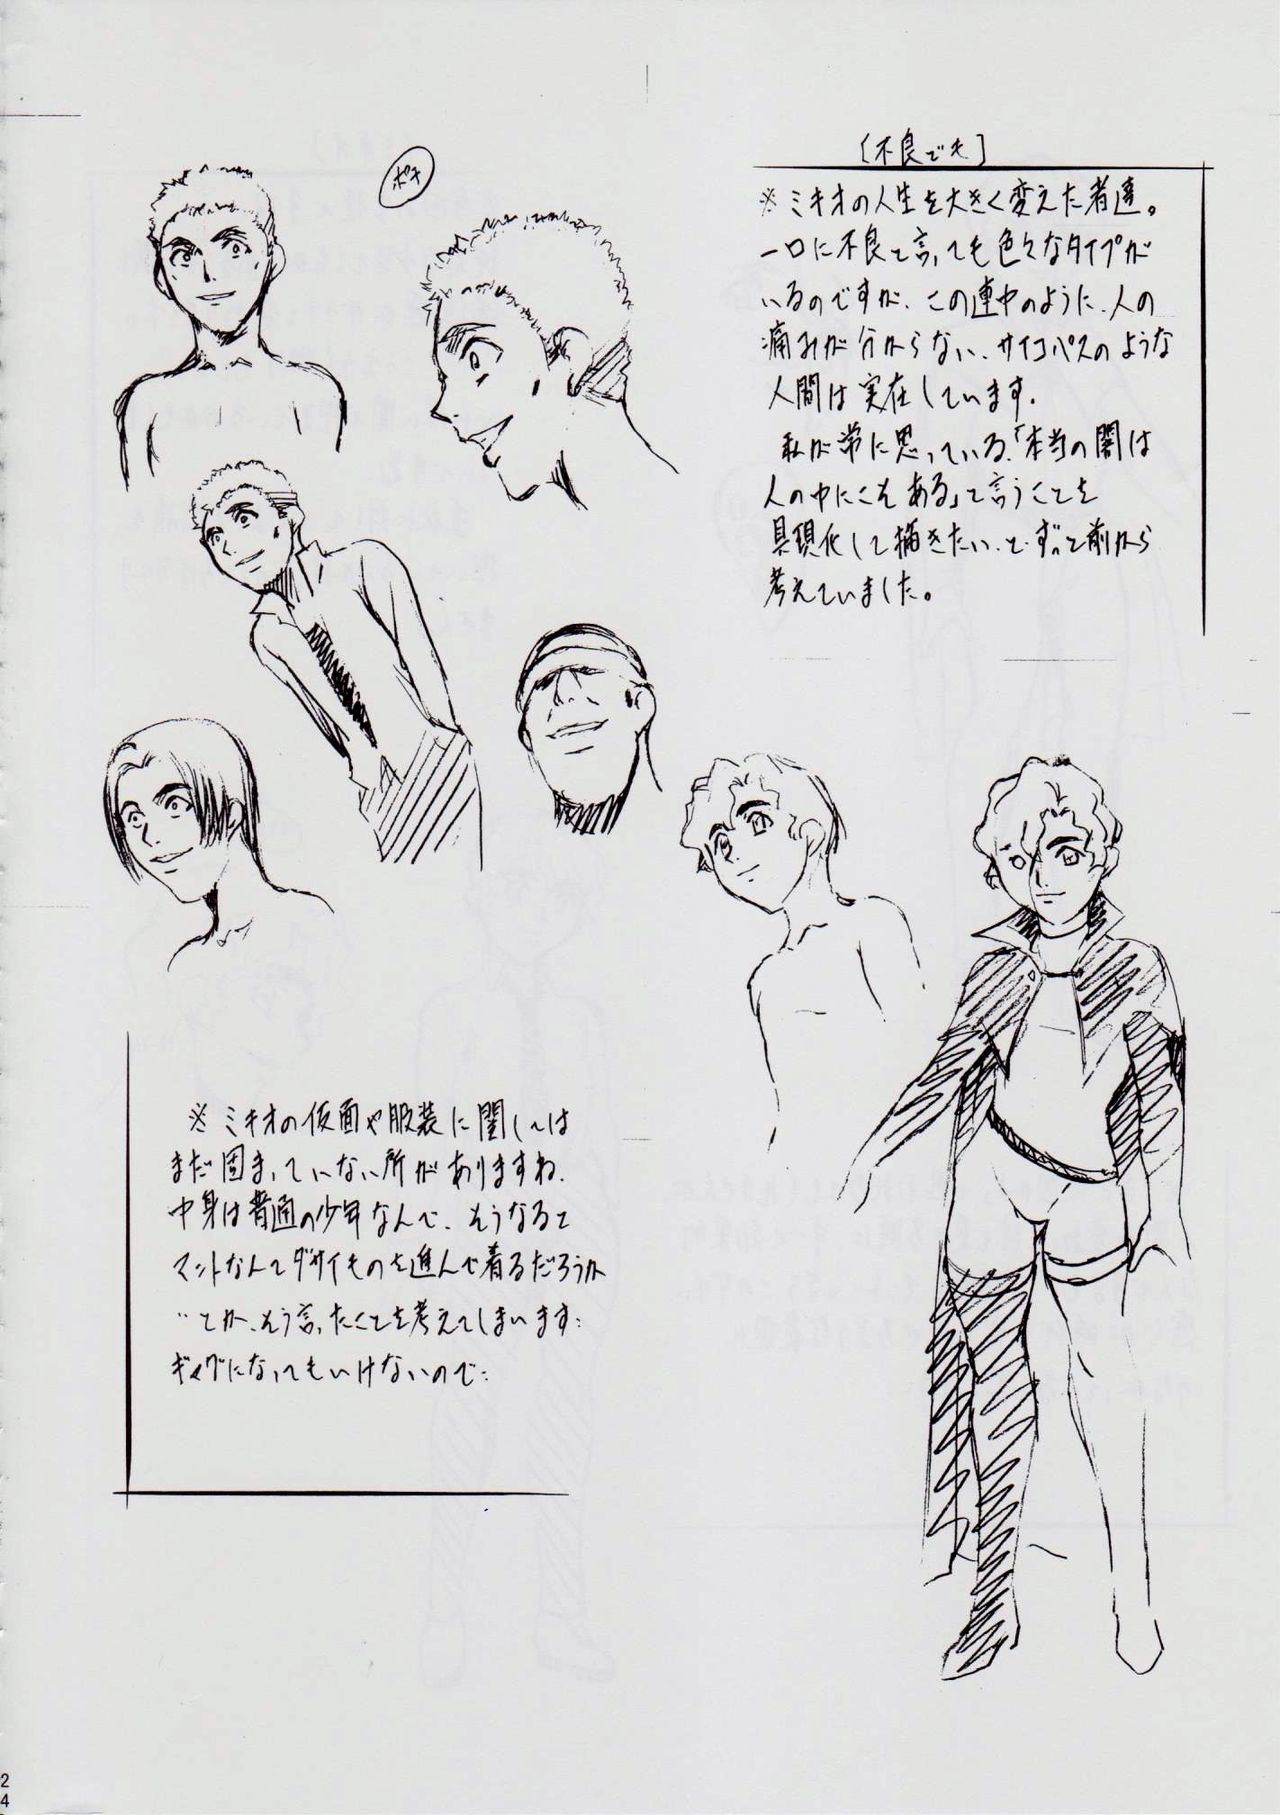 [不良ども]
※ミキオの人生を大きく変えた者達。
一口に不良と言っても色々なタイプが
いるのですが、この連中のように、人の
痛みが分からない、サイコパスのような
人間は実在しています。
私が常に思っている、「本当の闇は
人の中にこそある」と言うことを
具現化して描きたい、と、ずっと前から
考えていました。
ポキ
※ミキオの仮面や服装に関しては
まだ固まっていない所がありますね。
中身は普通の少年なんで、そうなると
マントなんてダサイものを進んで着るだろうか
…とか、そう言ったことを考えてしまいます…
ギャグになってもいけないので…
24